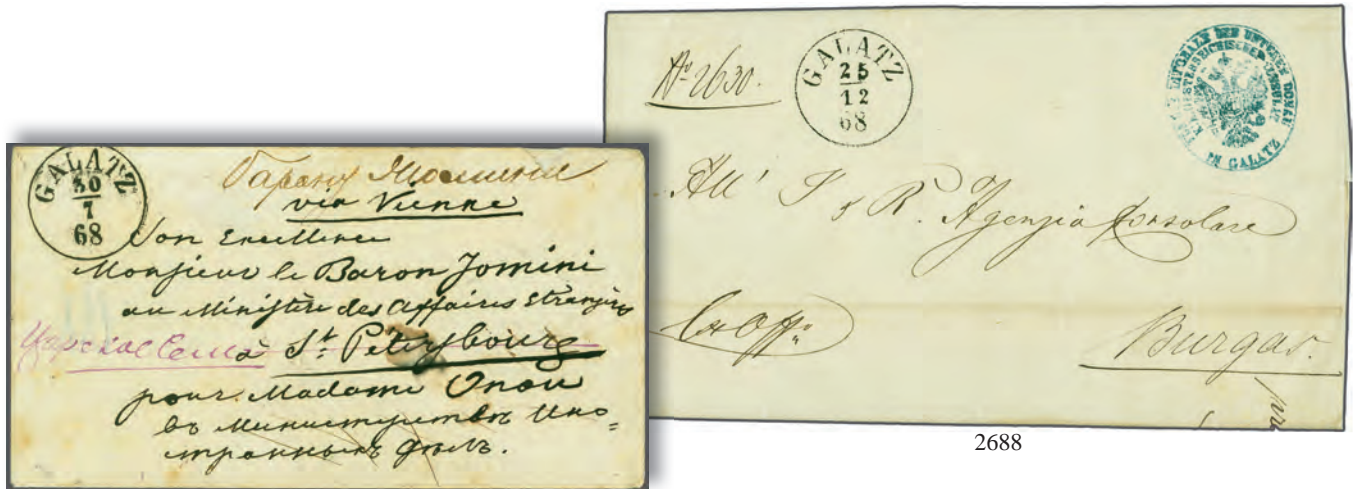 GALATZ
30
7
68
via Vienne
Son Excellence
Monsieur le Baron Jomini
au Ministère des Affaires Etrangères
Царское Село à St. Pétersbourg
pour Madame Onou
въ Министерствѣ Ино=
странныхъ Дѣлъ.
No 2630.
GALATZ
25
12
68
IN GALATZ
All' I & R. Agenzia Consolare
Ex Offo:
Burgas.
2688